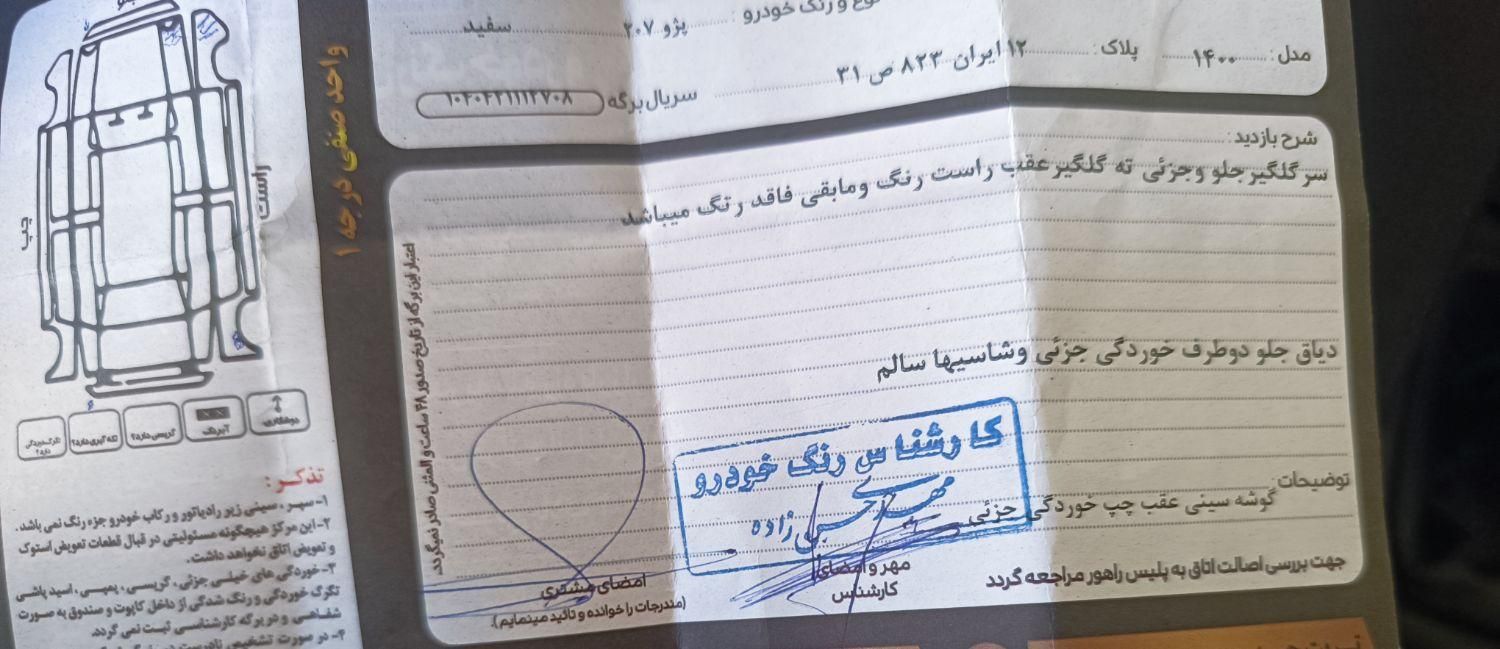 نوع و رنگ خودرو : پژو ۲۰۷ سفید
مدل : ۱۴۰۰ پلاک : ۱۲ ایران ۸۲۳ ص ۳۱
سریال برگه
شرح بازدید :
سر گلگیر جلو وجزئی ته گلگیر عقب راست رنگ ومابقی فاقد رنگ میباشد
دیاق جلو دوطرف خوردگی جزئی وشاسیها سالم
کارشناس رنگ خودرو
توضیحات :
گوشه سینی عقب چپ خوردگی جزئی
جهت بررسی اصالت اتاق به پلیس راهور مراجعه گردد
مهر و امضای
کارشناس
امضای مشتری
(مندرجات را خوانده و تائید مینمایم).
اعتبار این برگه از تاریخ صدور ۴۸ ساعت و المثنی صادر نمیگردد.
واحد صنفی درجه ۱
جلو
راست
چپ
تذکر :
۱- سپر ، سینی زیر رادیاتور و رکاب خودرو جزء رنگ نمی باشد .
۲- این مرکز هیچگونه مسئولیتی در قبال قطعات تعویض استوک
و تعویض اتاق نخواهد داشت.
۳- خوردگی های خیلی جزئی ، گریسی ، پمپی ، اسید پاشی
تگرگ خوردگی و رنگ شدگی از داخل کاپوت و صندوق به صورت
شفاهی و در برگه کارشناسی ثبت نمی گردد.
۴- در صورت تشخیص نادرست